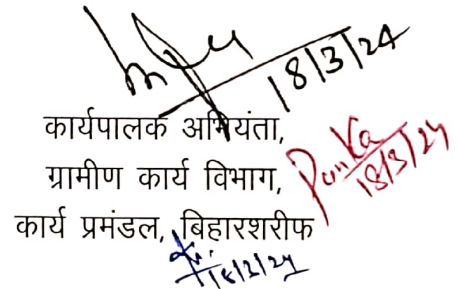 18/3/24
कार्यपालक अभियंता,
ग्रामीण कार्य विभाग,
कार्य प्रमंडल, बिहारशरीफ
18/3/24